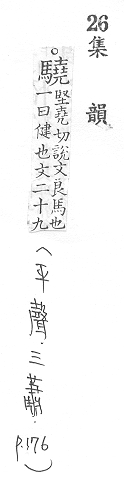 26集韻
。驍堅堯切說文良馬也
一曰健也文二十九
（平聲·三蕭·
p.176）